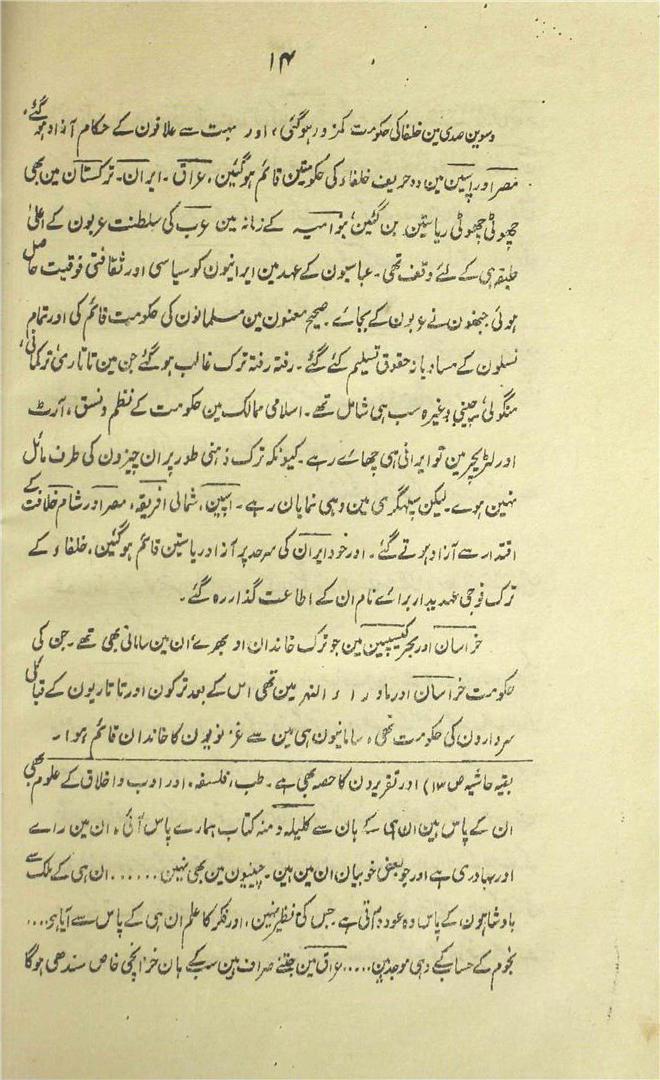 ۱۴
دسوین صدی مین خلفا کی حکومت کمزور ہوگئی، اور بہت سے علاقون کے حکام آزاد ہوگئے،
مصر اور اسپین مین دو حریف خلفاء کی حکومتین قائم ہوگئین، عراق۔ ایران۔ ترکستان مین بھی
چھوٹی چھوٹی ریاستین بن گئین، بنو امیہ کے زمانہ مین عرب کی سلطنت عربون کے اعلیٰ
طبقہ ہی کے لئے وقف تھی۔ عباسیون کے عہد مین ایرانیون کو سیاسی اور ثقافتی فوقیت حاصل
ہوئی جنھون نے عربون کے بجائے صحیح معنون مین مسلمانون کی حکومت قائم کی اور تمام
نسلون کے مساویانہ حقوق تسلیم کئے گئے۔ رفتہ رفتہ ترک غالب ہوگئے جن مین تاتاری، ترکمانی،
منگولی، چینی وغیرہ سب ہی شامل تھے۔ اسلامی ممالک مین حکومت کے نظم و نسق، آرٹ
اور لٹریچر مین تو ایرانی ہی چھائے رہے۔ کیونکہ ترک ذہنی طور پر ان چیزون کی طرف مائل
نہین ہوے۔ لیکن سپہگری مین وہی نمایان رہے۔ اسپین، شمالی افریقہ، مصر اور شام خلافت کے
اقتدار سے آزاد ہوتے گئے۔ اور خود ایران کی سرحد پر آزاد ریاستین قائم ہوگئین، خلفاء کے
ترک فوجی عہدیدار برائے نام ان کے اطاعت گذار رہ گئے۔
خراسان اور بحر کیسپین مین جو ترک خاندان ابھرے، ان مین سامانی بھی تھے۔ جن کی
حکومت خراسان اور ماوراء النہر مین تھی اس کے بعد ترکون اور تاتاریون کے قبائلی
سردارون کی حکومت تھی، سامانیون ہی مین سے غزنویون کا خاندان قائم ہوا۔
بقیہ حاشیہ ص ۱۳) اور تقریرون کا حصہ بھی ہے۔ طب، فلسفہ، اور ادب و اخلاق کے علوم بھی
ان کے پاس ہین ان ہی کے ہان سے کلیلہ و دمنہ کتاب ہمارے پاس آئی، ان مین رائے
اور بہادری ہے اور جو بعض خوبیان ان مین ہین۔ چینیون مین بھی نہین ...... ان ہی کے ملک سے
بادشاہون کے پاس وہ عود آتی ہے جس کی نظیر نہین، اور فکر کا علم ان ہی کے پاس سے آیا ہے....
نجوم کے حساب کے وہی موجد ہین..... عراق مین جتنے صراف ہین سب کے ہان خزانچی خاص سندھی ہوگا